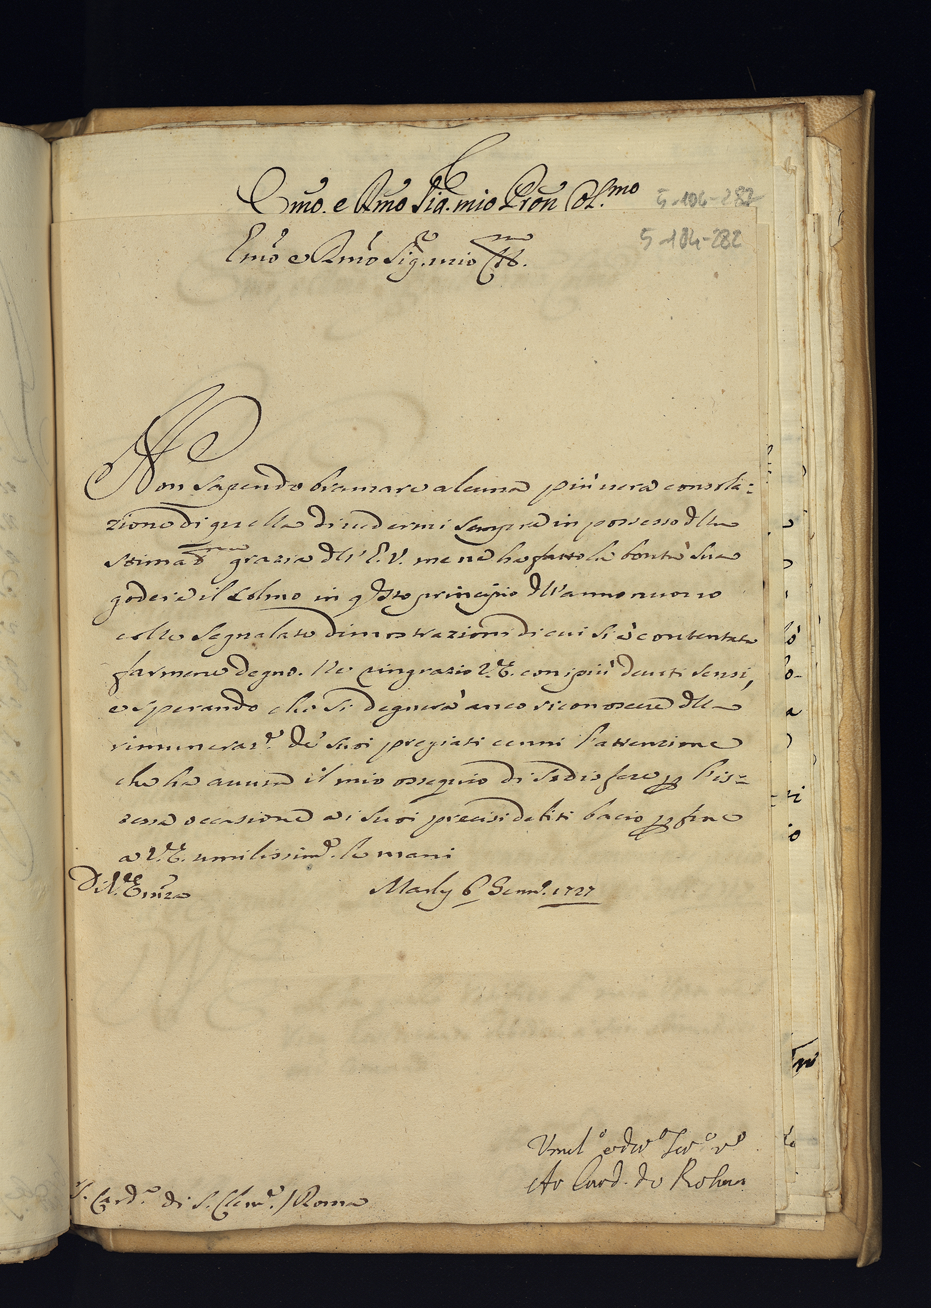 Emo. e Rmo Sig. mio Pron Ol.mo
5-104-282
Emo e Rmo Sig.e mio
5-104-282
Non sapendo bramare alcuna più vera consola:
zione di quella di vedermi sempre in possesso della
stimad.ma grazia dell' E.V. me ne ha fatto la bontà sua
godere il colmo in q.sto principio dell'anno nuovo
colle segnalate dimostrazioni di cui si è contentata
farmene degno. Ne ringrazio V.E. con i più devoti sensi,
e sperando che si degnerà anco riconoscere della
de' suoi pregiati cenni l'attenzione
che ha avuta il mio ossequio di sodisfare l'is=
tessa occasione a i suoi bacio fine
a V.E. umilissim.e le mani
Di V.E. Marly 6 Genn.o 1727
Umil.o e dev.o Ser.e v.o
Card. de Rohan
S. Card.e di S. Clem.e / Roma